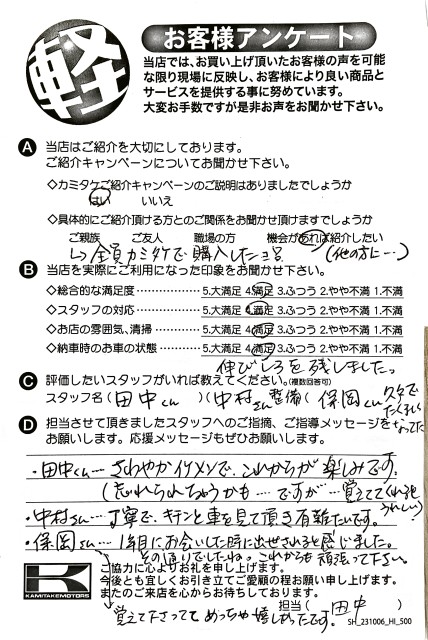 軽
お客様アンケート
当店では、お買い上げ頂いたお客様の声を可能
な限り現場に反映し、お客様により良い商品と
サービスを提供する事に努めています。
大変お手数ですが是非お声をお聞かせ下さい。
A 当店はご紹介を大切にしております。
ご紹介キャンペーンについてお聞かせ下さい。
◇カミタケご紹介キャンペーンのご説明はありましたでしょうか
はい いいえ
◇具体的にご紹介頂ける方とのご関係をお聞かせ頂けますでしょうか
ご親族 ご友人 職場の方 機会があれば紹介したい
↳全員カミタケで購入したヨ!! (他の方に…)
B 当店を実際にご利用になった印象をお聞かせ下さい。
◇総合的な満足度 …………… 5.大満足 4.満足 3.ふつう 2.やや不満 1.不満
◇スタッフの対応 …………… 5.大満足 4.満足 3.ふつう 2.やや不満 1.不満
◇お店の雰囲気、清掃 ………… 5.大満足 4.満足 3.ふつう 2.やや不満 1.不満
◇納車時のお車の状態 ………… 5.大満足 4.満足 3.ふつう 2.やや不満 1.不満
伸びしろを残しました。
C 評価したいスタッフがいれば教えてください。(複数回答可)
スタッフ名(田中くん)(中村さん整備(保岡くん
たくましく
なってた
D 担当させて頂きましたスタッフへのご指摘、ご指導メッセージを
お願いします。応援メッセージもぜひお願いします。
・田中くん… さわやかイケメンで、これからが楽しみです。
(忘れられちゃうかも…ですが…覚えててくれると
うれしい)
・中村さん…丁寧で、キチンと車を見て頂き有難たいです。
・保岡さん…1年目にお会いした時に出世されると感じました。
その通りでしたね。これからも頑張って下さい。
K
KAMITAKEMOTORS
ご協力に心よりお礼を申し上げます。
今後とも宜しくお引き立てご愛顧の程お願い申し上げます。
またのご来店を心からお待ちしております。
覚えて下さっててめっちゃ嬉しかったです。
担当(田中)
SH_231006_HI_500